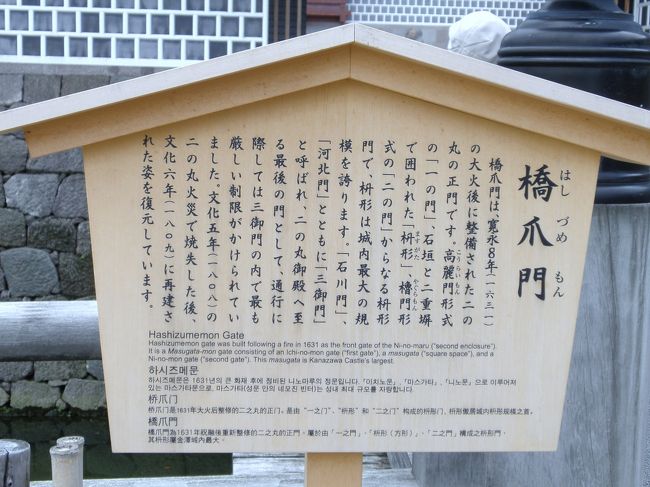 橋爪門
はし づめ もん
橋爪門は、寛永8年(一六三一)
の大火後に整備された二の
丸の正門です。高麗門形式
こうらいもん
の「一の門」、石垣と二重塀
で囲われた「枡形」、櫓門形
ますがた
やぐらもん
式の「二の門」からなる枡形
門で、枡形は城内最大の規
模を誇ります。「石川門」、
「河北門」とともに「三御門」
と呼ばれ、二の丸御殿へ至
る最後の門として、通行に
際しては三御門の内で最も
厳しい制限がかけられてい
ました。文化五年(一八〇八)の
二の丸火災で焼失した後、
文化六年(一八〇九)に再建さ
れた姿を復元しています。
Hashizumemon Gate
Hashizumemon gate was built following a fire in 1631 as the front gate of the Ni-no-maru ("second enclosure").
It is a Masugata-mon gate consisting of an Ichi-no-mon gate ("first gate"), a masugata ("square space"), and a
Ni-no-mon gate ("second gate"). This masugata is Kanazawa Castle's largest.
하시즈메문
하시즈메문은 1631년의 큰 화재 후에 정비된 니노마루의 정문입니다. 「이치노문」, 「마스가타」, 「니노문」으로 이루어져
있는 마스가타문으로, 마스가타(성문 안의 네모진 빈터)는 성내 최대 규모를 자랑합니다.
桥爪门
桥爪门是1631年大火后整修的二之丸的正门。是由“一之门”、“枡形”和“二之门”构成的枡形门，枡形傲居城内枡形规模之首。
橋爪門
橋爪門為1631年祝融後重新整修的二之丸的正門。屬於由「一之門」、「枡形（方形）」、「二之門」構成之枡形門，
其枡形屬金澤城內最大。